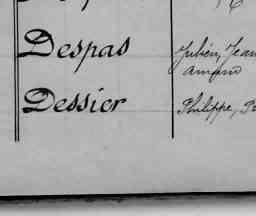 Despas Julien, Jean
Amand
Dessier Philippe,